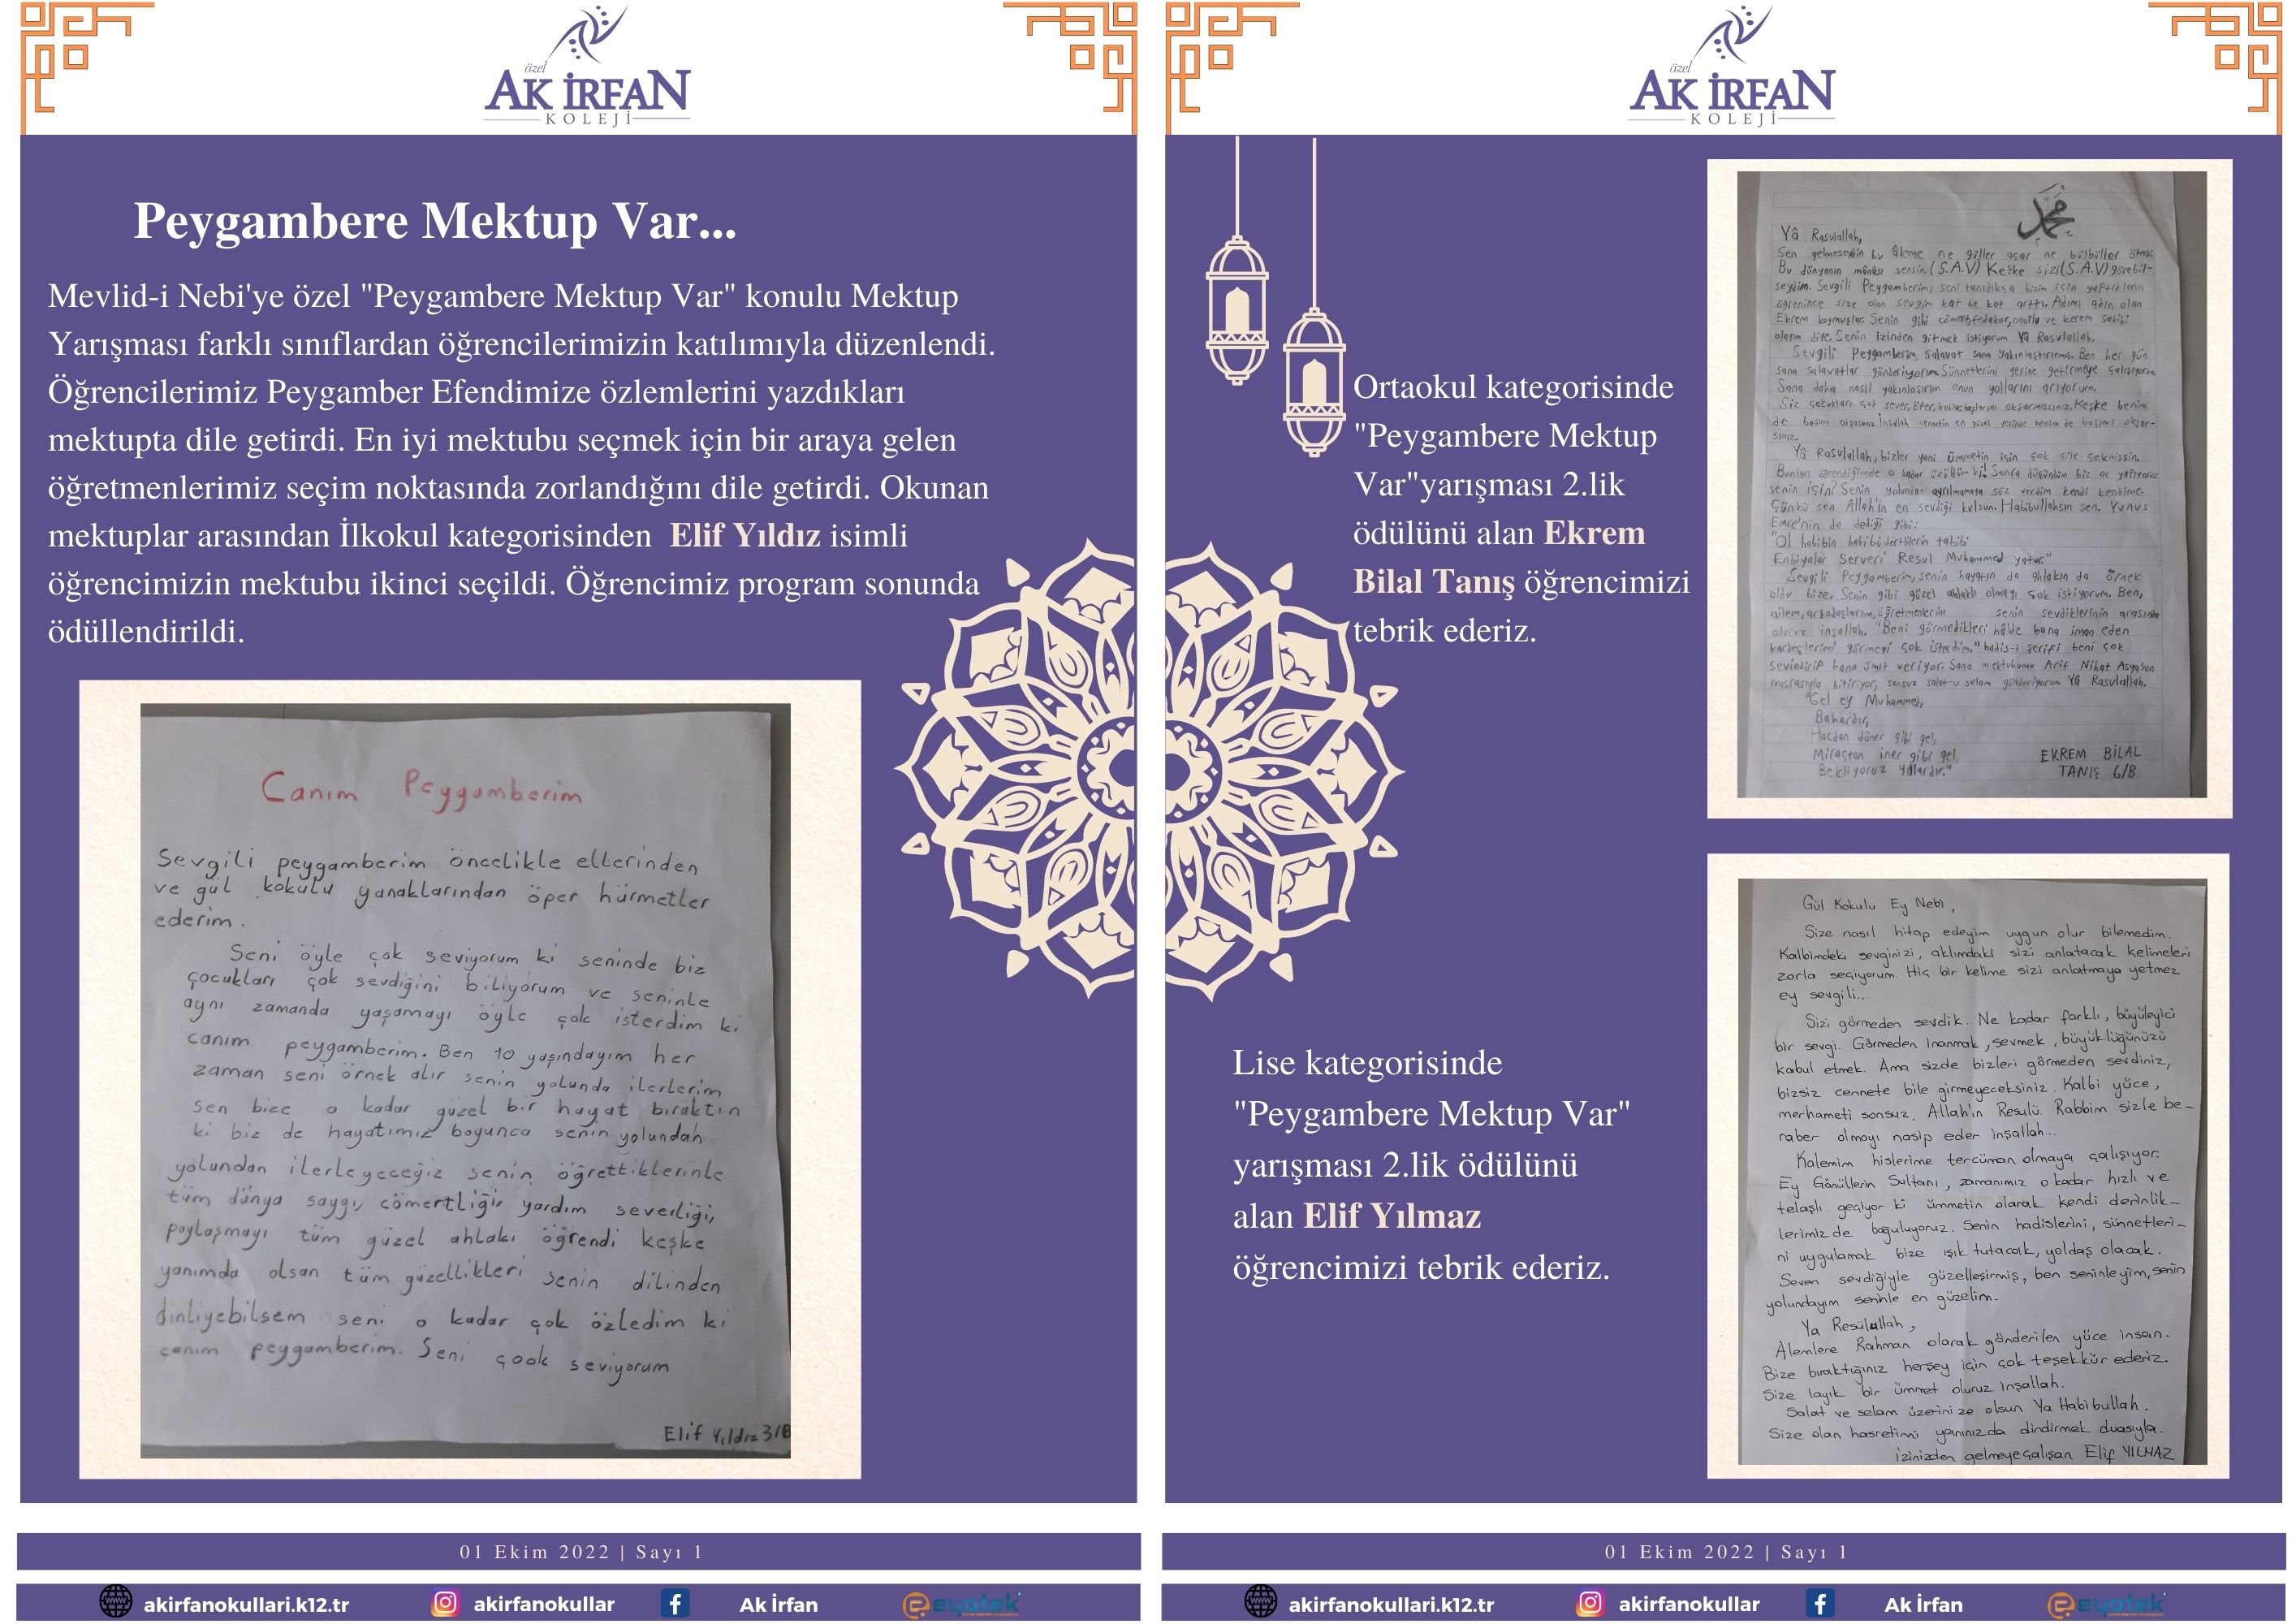 özel
AK İRFAN
KOLEJİ
Peygambere Mektup Var...
Mevlid-i Nebi'ye özel "Peygambere Mektup Var" konulu Mektup
Yarışması farklı sınıflardan öğrencilerimizin katılımıyla düzenlendi.
Öğrencilerimiz Peygamber Efendimize özlemlerini yazdıkları
mektupta dile getirdi. En iyi mektubu seçmek için bir araya gelen
öğretmenlerimiz seçim noktasında zorlandığını dile getirdi. Okunan
mektuplar arasından İlkokul kategorisinden Elif Yıldız isimli
öğrencimizin mektubu ikinci seçildi. Öğrencimiz program sonunda
ödüllendirildi.
Canım Peygamberim
Sevgili peygamberim öncelikle ellerinden
ve gül kokulu yanaklarından öper hürmetler
ederim.
Seni öyle çok seviyorum ki seninde biz
çocukları çok sevdiğini biliyorum ve seninle
aynı zamanda yaşamayı öyle çok isterdim ki
canım peygamberim. Ben 10 yaşındayım her
zaman seni örnek alır senin yolunda ilerlerim
sen bize o kadar güzel bir hayat bıraktın
ki biz de hayatımız boyunca senin yolundan
yolundan ilerleyeceğiz senin öğrettiklerinle
tüm dünya saygı, cömertliği, yardım severliği,
paylaşmayı tüm güzel ahlakı öğrendi keşke
yanımda olsan tüm güzellikleri senin dilinden
dinliyebilsem seni o kadar çok özledim ki
canım peygamberim. Seni çook seviyorum
Elif Yıldız 3/B
01 Ekim 2022 | Sayı 1
akirfanokullari.k12.tr akirfanokullar Ak İrfan eyotek
özel
AK İRFAN
KOLEJİ
Ortaokul kategorisinde
"Peygambere Mektup
Var"yarışması 2.lik
ödülünü alan Ekrem
Bilal Tanış öğrencimizi
tebrik ederiz.
محمد
Yâ Rasulallah,
Sen gelmeseydin bu âleme ne güller açar ne bülbüller öterdi
Bu dünyanın mânâsı sensin.(S.A.V) Keşke sizi(S.A.V) görebil-
seydim. Sevgili Peygamberim, seni tanıdıkça bizim için yaptıklarını
öğrenince size olan sevgim kat be kat arttı. Adımı adın olan
Ekrem koymuşlar. Senin gibi cömert, fedakar, onurlu ve kerem sahibi
olayım diye. Senin izinden gitmek istiyorum Yâ Rasulallah.
Sevgili Peygamberim, salavat sana yakınlaştırırmış. Ben her gün
sana salavatlar gönderiyorum. Sünnetlerini yerine getirmeye çalışıyorum.
Sana daha nasıl yakınlaşırım onun yollarını arıyorum.
Siz çocukları çok sever, öper, koklar, başlarını okşarmışsınız. Keşke benim
de başımı okşasanız. İnşallah cennetin en güzel yerinde benim de başımı okşar-
sınız.
Yâ Rasulallah, bizler yani ümmetin için çok çile çekmişsin.
Bunları öğrendiğimde o kadar üzüldüm ki! Sonra düşündüm biz ne yapıyoruz
senin için? Senin yolundan ayrılmamaya söz verdim kendi kendime.
Çünkü sen Allah'ın en sevdiği kulsun. Habibullahsın sen. Yunus
Emre'nin de dediği gibi:
"Ol habibin habibi, dertlilerin tabibi
Enbiyalar Serveri Resul Muhammed yatur."
Sevgili Peygamberim, senin hayatın da ahlakın da örnek
oldu bize. Senin gibi güzel ahlaklı olmayı çok istiyorum. Ben,
ailem, arkadaşlarım, öğretmenlerim senin sevdiklerinin arasında
oluruz inşallah. "Beni görmedikleri hâlde bana iman eden
kardeşlerimi görmeyi çok isterdim." hadis-i şerifi beni çok
sevindirip bana ümit veriyor. Sana mektubumu Arif Nihat Asya'nın
mısrasıyla bitiriyor, sonsuz salat-u selam gönderiyorum Yâ Rasulallah.
"Gel ey Muhammed,
Bahardır,
Hacdan döner gibi gel,
Miraçtan iner gibi gel,
Bekliyoruz yıllardır."
EKREM BİLAL
TANIŞ 6/B
Lise kategorisinde
"Peygambere Mektup Var"
yarışması 2.lik ödülünü
alan Elif Yılmaz
öğrencimizi tebrik ederiz.
Gül Kokulu Ey Nebi,
Size nasıl hitap edeyim uygun olur bilemedim.
Kalbimdeki sevginizi, aklımdaki sizi anlatacak kelimeleri
zorla seçiyorum. Hiç bir kelime sizi anlatmaya yetmez
ey sevgili...
Sizi görmeden sevdik. Ne kadar farklı, büyüleyici
bir sevgi. Görmeden inanmak, sevmek, büyüklüğünüzü
kabul etmek. Ama sizde bizleri görmeden sevdiniz,
bizsiz cennete bile girmeyeceksiniz. Kalbi yüce,
merhameti sonsuz, Allah'ın Resulü. Rabbim sizle be-
raber olmayı nasip eder inşallah...
Kalemim hislerime tercüman olmaya çalışıyor.
Ey Gönüllerin Sultanı, zamanımız o kadar hızlı ve
telaşlı geçiyor ki ümmetin olarak kendi derinlik-
lerimizde boğuluyoruz. Senin hadislerini, sünnetleri-
ni uygulamak bize ışık tutacak, yoldaş olacak.
Seven sevdiğiyle güzelleşirmiş, ben seninleyim, senin
yolundayım seninle en güzelim.
Ya Resülallah,
Alemlere Rahman olarak gönderilen yüce insan.
Bize bıraktığınız herşey için çok teşekkür ederiz.
Size layık bir ümmet oluruz inşallah.
Salat ve selam üzerinize olsun Ya Habibullah.
Size olan hasretimi yanınızda dindirmek duasıyla.
izinizden gelmeye çalışan Elif YILMAZ
01 Ekim 2022 | Sayı 1
akirfanokullari.k12.tr akirfanokullar Ak İrfan eyotek